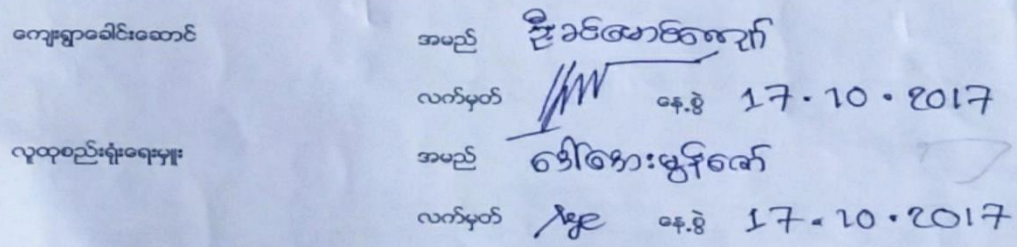 ကျေးရွာခေါင်းဆောင် အမည် ဦးခင်မောင်ကျော်
လက်မှတ် နေ့စွဲ 17.10.2017
လူထုစည်းရုံးရေးမှူး အမည် ဒေါ်အေးမွန်ဇော်
လက်မှတ် Aye နေ့စွဲ 17.10.2017